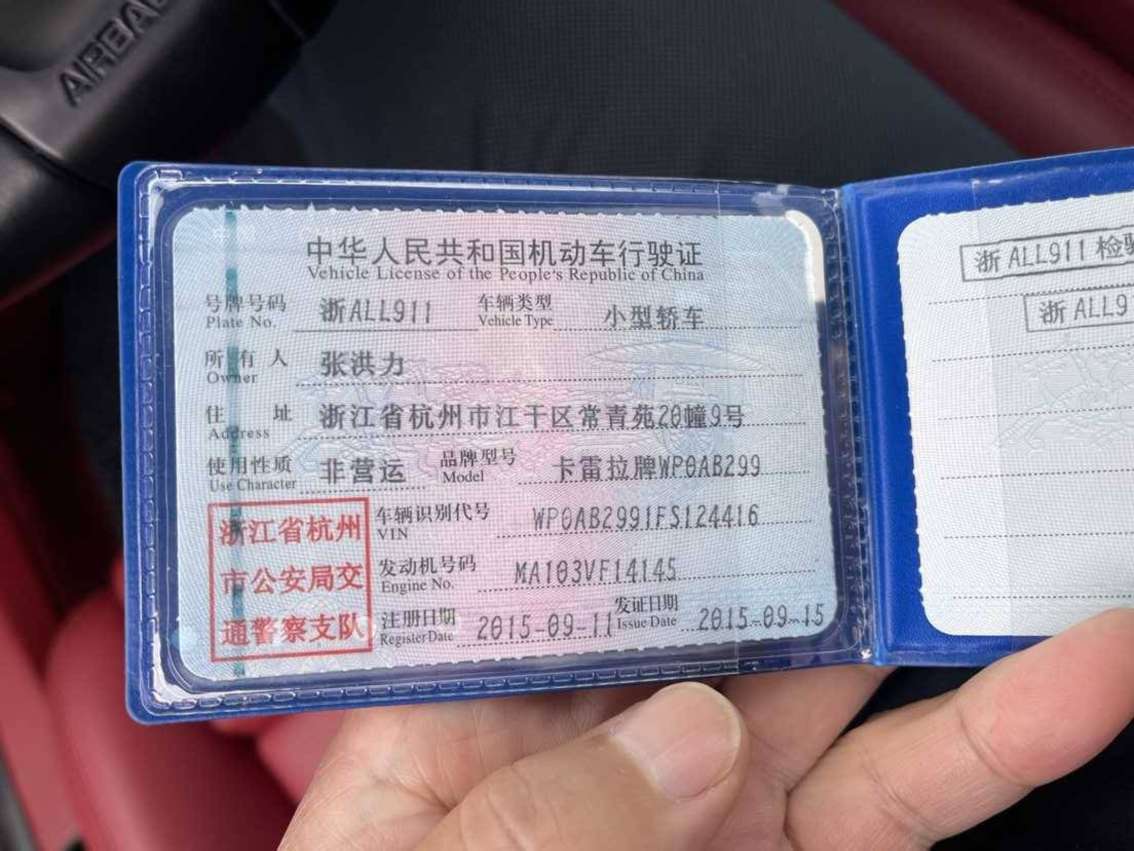 AIRBAG
中华人民共和国机动车行驶证
Vehicle License of the People's Republic of China
号牌号码 浙ALL911 车辆类型 小型轿车
Plate No. Vehicle Type
所有人 张洪力
Owner
住址 浙江省杭州市江干区常青苑20幢9号
Address
使用性质 非营运 品牌型号 卡雷拉牌WP0AB299
Use Character Model
浙江省杭州
市公安局交
通警察支队
车辆识别代号 WP0AB2991FS124416
VIN
发动机号码 MA103VF14145
Engine No.
注册日期 2015-09-11 发证日期 2015-09-15
Register Date Issue Date
浙ALL911检验
浙ALL91